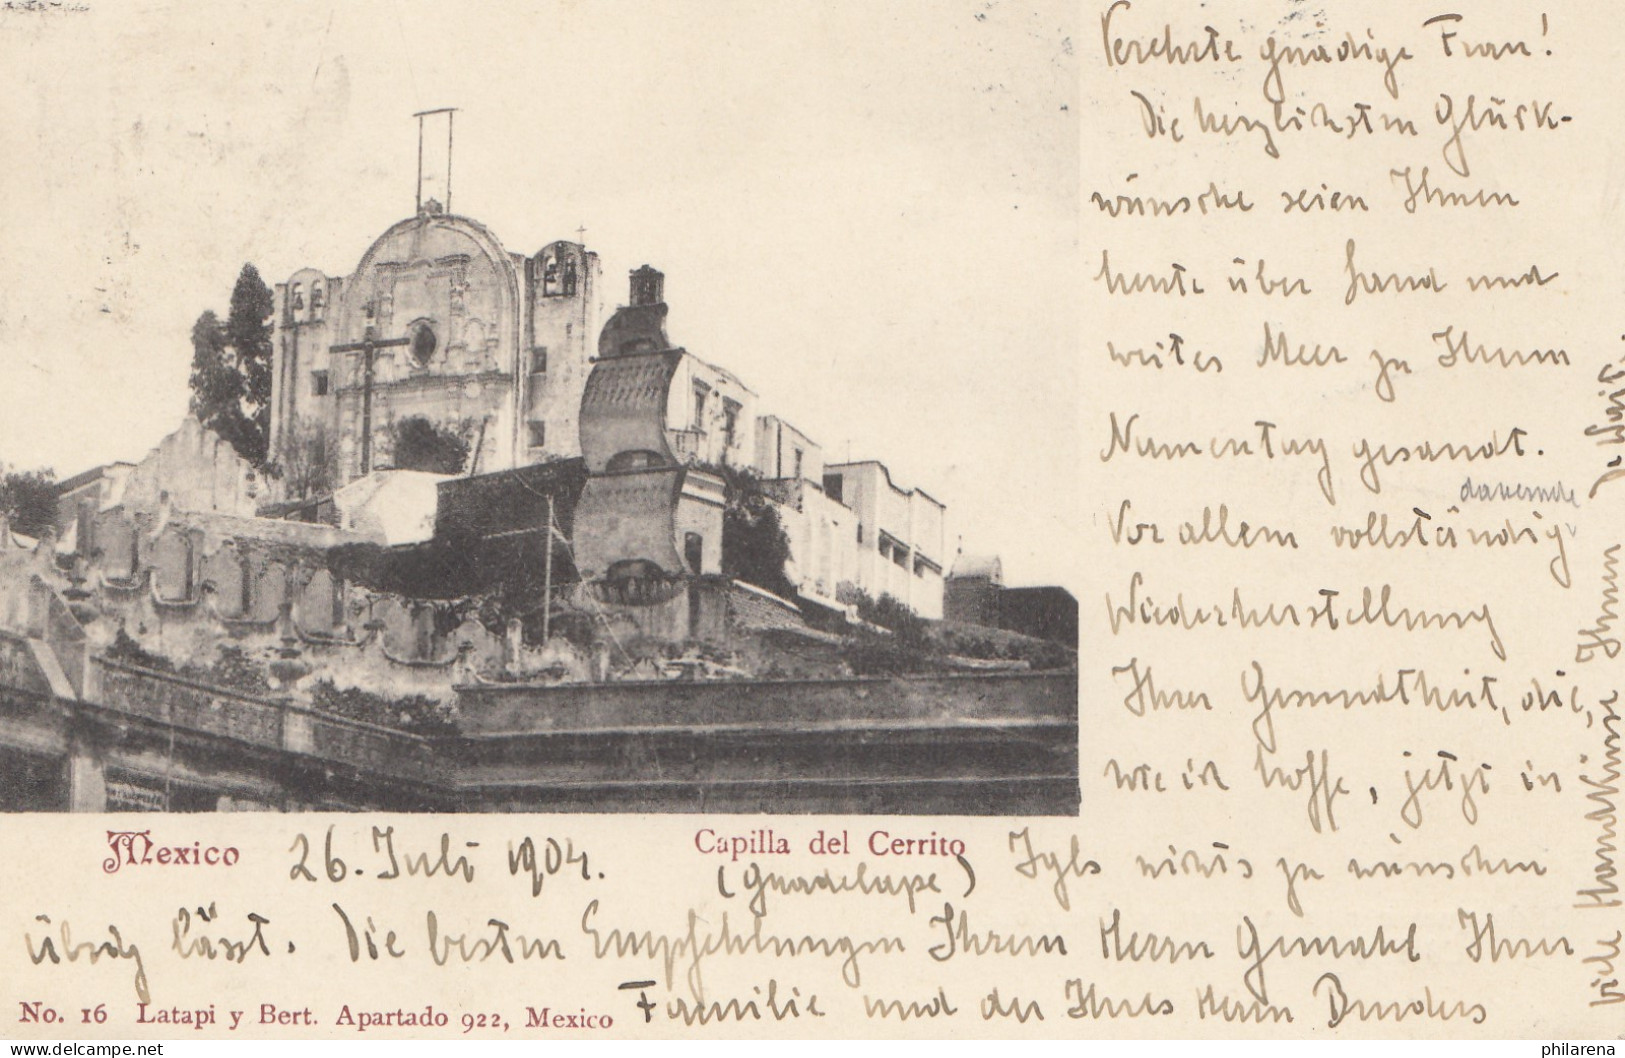 Verehrte gnädige Frau!
Die herzlichsten Glück-
wünsche seien Ihnen
heute über Land und
weites Meer zu Ihrem
Namenstag gesandt.
dauernde
Vor allem vollständig
Wiederherstellung
Ihrer Gesundheit, die,
wie ich hoffe, jetzt in
Mexico 26. Juli 1904. Capilla del Cerrito
(Guadelupe) Igls nichts zu wünschen
übrig lässt. Die besten Empfehlungen Ihrem Herrn Gemahl Ihrer
No. 16 Latapi y Bert. Apartado 922, Mexico Familie und der Ihres Herrn Bruders
viele Handküsse Ihnen
philarena.com/Delcampe.net